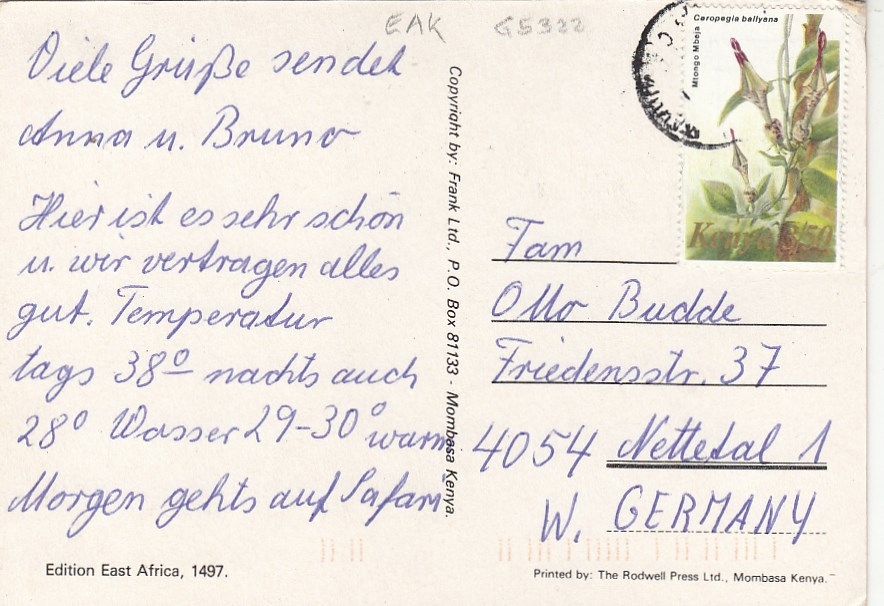 EAK G5322
Viele Grüße sendet
Anna u. Bruno
Hier ist es sehr schön
u. wir vertragen alles
gut. Temperatur
tags 38º nachts auch
28º Wasser 29-30º warm
Morgen gehts auf Safari
Edition East Africa, 1497.
Copyright by: Frank Ltd., P.O. Box 81133 - Mombasa Kenya.
Ceropegia ballyana
Mtongo Mbeja
Kenya 3/50
Fam
Otto Budde
Friedensstr. 37
4054 Nettetal 1
W. GERMANY
Printed by: The Rodwell Press Ltd., Mombasa Kenya.